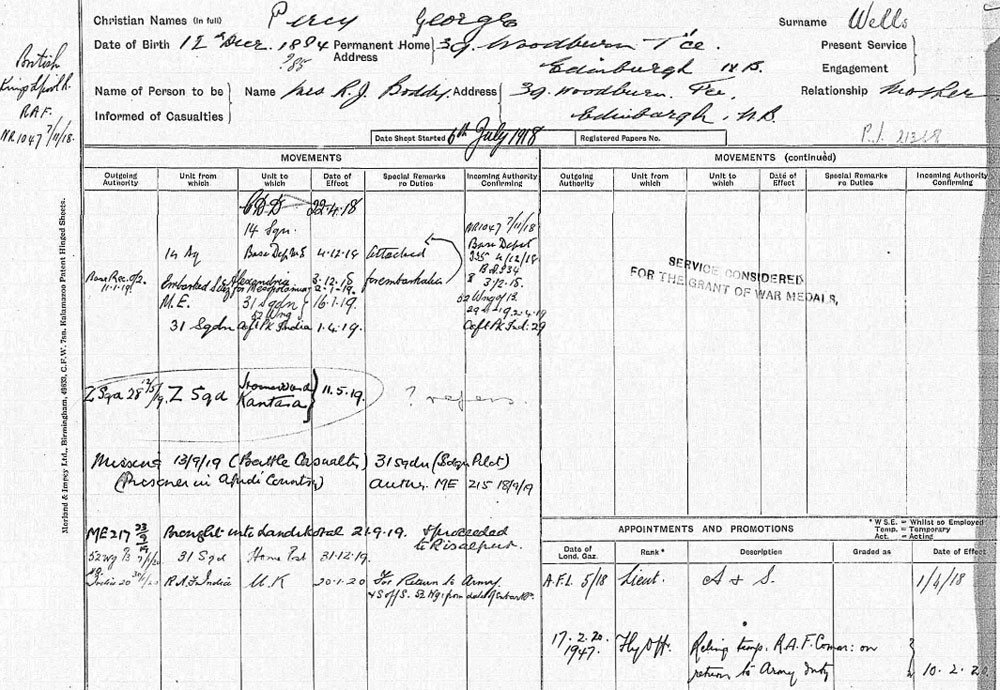 Christian Names (in full) Percy George Surname Wells
Date of Birth 12th Decr. 1894 Permanent Home Address 39. Woodburn T'ce.
?85
Edinburgh N.B.
Present Service
Engagement
British
R.A.F.
NR1047 7/11/18.
Name of Person to be Informed of Casualties Name Mrs R.J. Address 39. Woodburn Tce, Relationship Mother
Edinburgh. N.B.
Date Sheet Started 6th July 1918 Registered Papers No. P.I. 21328
MOVEMENTS
Outgoing Authority Unit from which Unit to which Date of Effect Special Remarks re Duties Incoming Authority Confirming
22.4.18
14 Sqn. NR1047 7/11/18
14 Sq Base Dep M.E 4.12.18 attached Base Depot
335 4/12/18
Embarked Alexandria for Mesopotamia for embarkation
11.1.19.
M.E. 31 Sqdn 16.1.19. 52 Wng
52 Wng
31 Sqdn India 1.4.19.
Z Sqd 28 12/5/19. Z Sqd Homeward Kantara 11.5.19. ? refers.
Missing 13/9/19 (Battle Casualty) 31 Sqdn (Pilot)
(Prisoner in Afridi Country) Auth. ME 215 18/9/19
ME217 23/9/19 Brought into Landi Kotal 21.9.19. & proceeded to Risalpur.
52 Wg 31 Sqd Home Est 31.12.19.
India 20 R.A.F. India U.K 20.1.20 For Return to Army.
MOVEMENTS (continued)
Outgoing Authority Unit from which Unit to which Date of Effect Special Remarks re Duties Incoming Authority Confirming
SERVICE CONSIDERED
FOR THE GRANT OF WAR MEDALS,
APPOINTMENTS AND PROMOTIONS
* W.S.E. = Whilst so Employed
Temp. = Temporary
Act. = Acting
Date of Lond. Gaz. Rank* Description Graded as Date of Effect
A.F.L. 5/18 Lieut. A & S. 1/4/18
17.2.20. 1947. Fly Offr. Relinq temp. R.A.F. Comm: on
return to Army duty 10.2.20
Morland & Impey Ltd., Birmingham, C.F.W. Kalamazoo Patent Hinged Sheets.